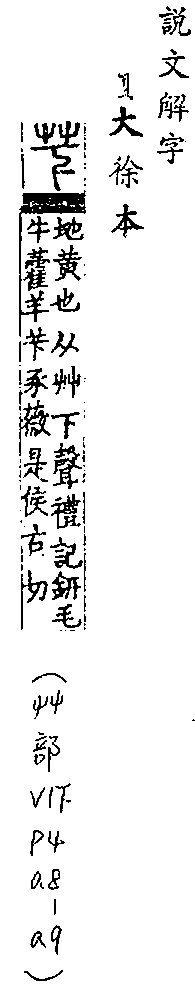 説文解字
大徐本
地黄也从艸下聲禮記鈃毛
牛藿羊芐豕薇是侯古切
(艸部
V1下
P4
a8
—
a9)